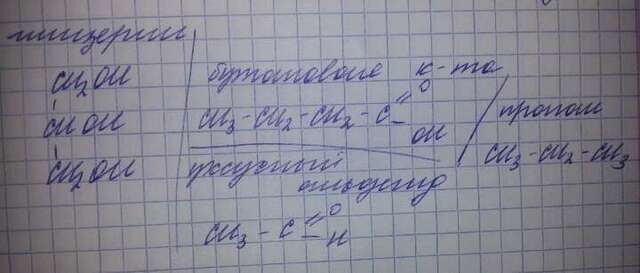 глицерин
CH2OH
CHOH
CH2OH
бутановая к-та
CH3-CH2-CH2-C=O
-OH
уксусный
альдегид
CH3-C=O
-H
пропан
CH3-CH2-CH3